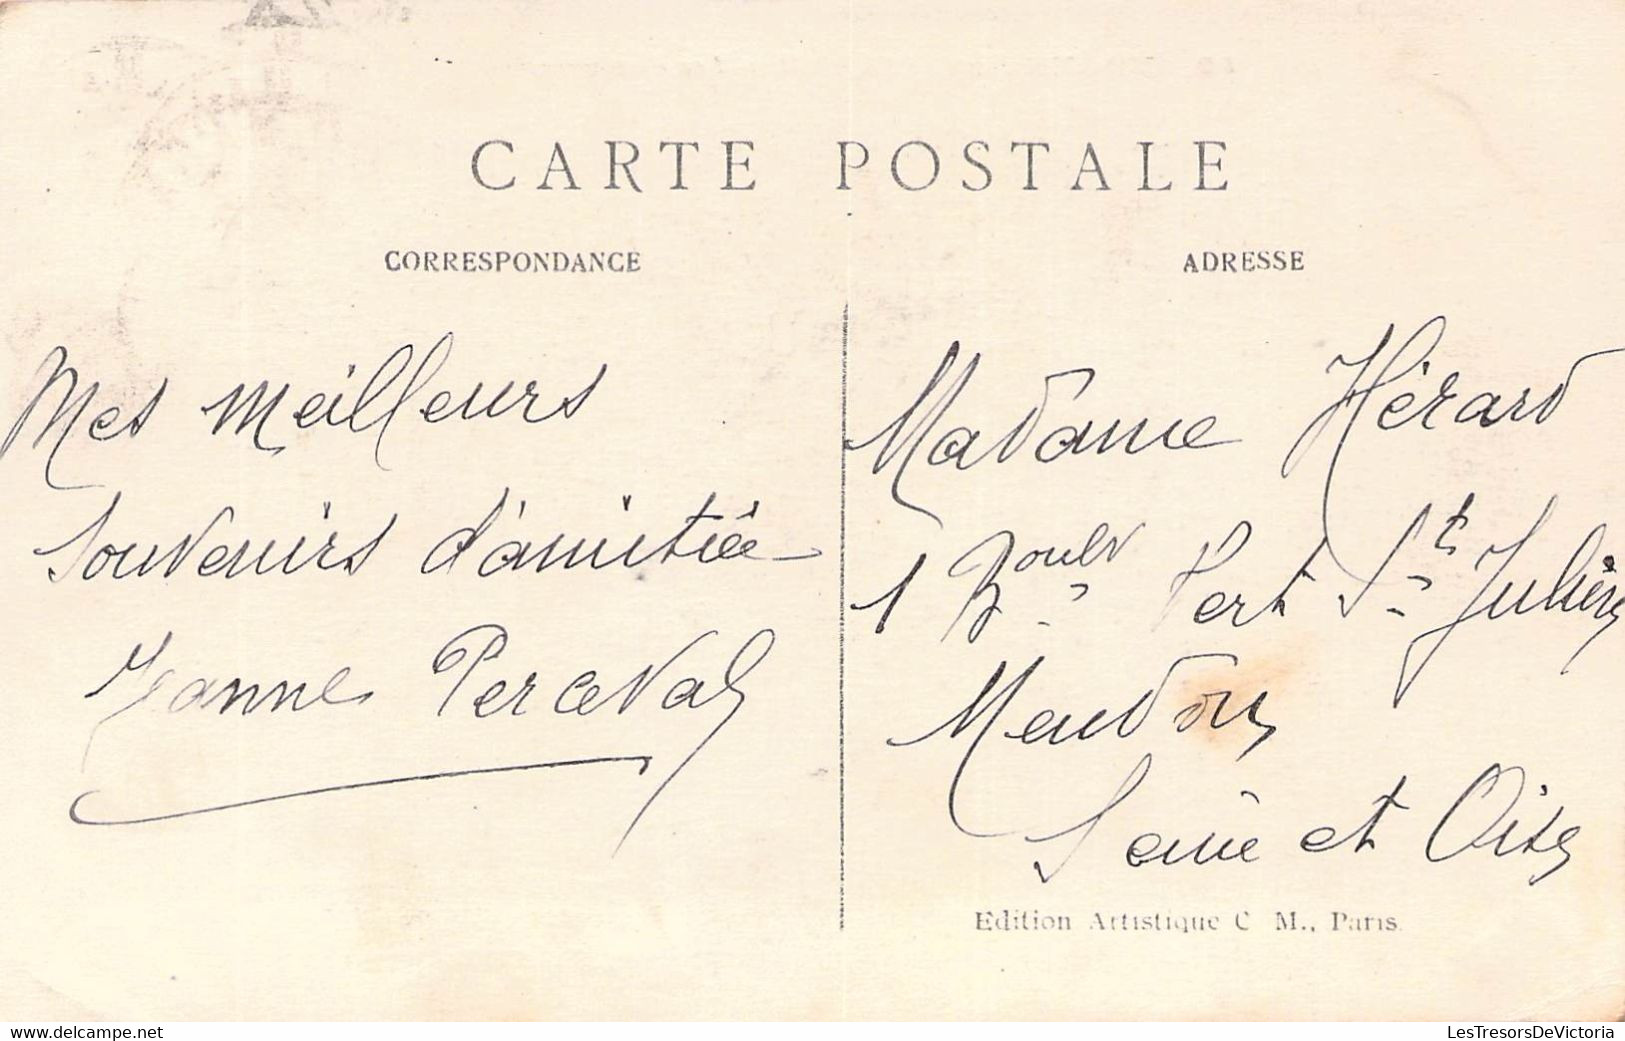 CARTE POSTALE
CORRESPONDANCE
ADRESSE
Mes meilleurs
souvenirs d'amitiée
Jeanne Perceval
Madame Hérard
1 Boulv Vert St Julien
Meudon
Seine et Oise
Edition Artistique C M., Paris.
www.delcampe.net
LesTresorsDeVictoria